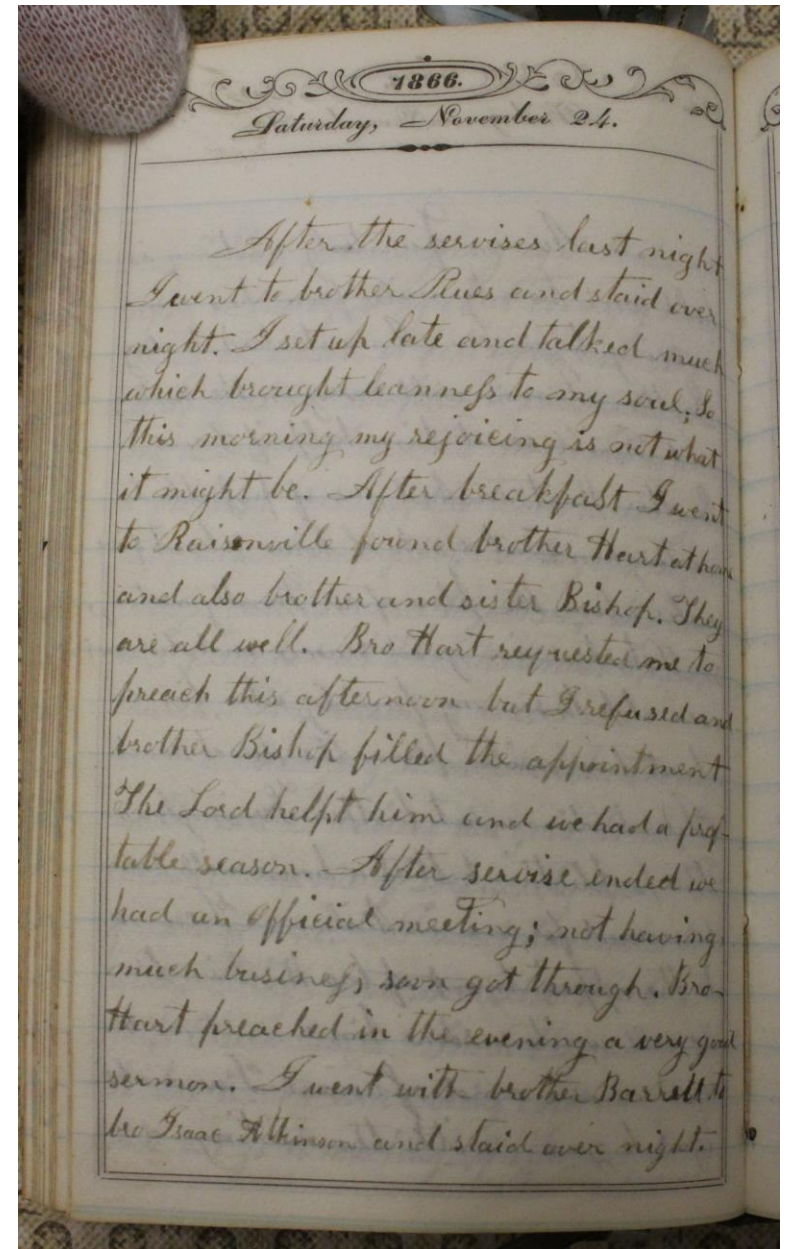 1866.
Saturday, November 24.
After the servises last night
I went to brother Plues and staid over
night. I set up late and talked much
which brought leanness to my soul; So
this morning my rejoicing is not what
it might be. After breakfast I went
to Raisonville found brother Hart at home
and also brother and sister Bishop. They
are all well. Bro Hart requested me to
preach this afternoon but I refused and
brother Bishop filled the appointment
The Lord helpt him and we had a prof-
table season. After servise ended we
had an official meeting; not having
much business soon got through. Bro-
Hart preached in the evening a very good
sermon. I went with brother Barrett to
bro Isaac Atkinson and staid over night.